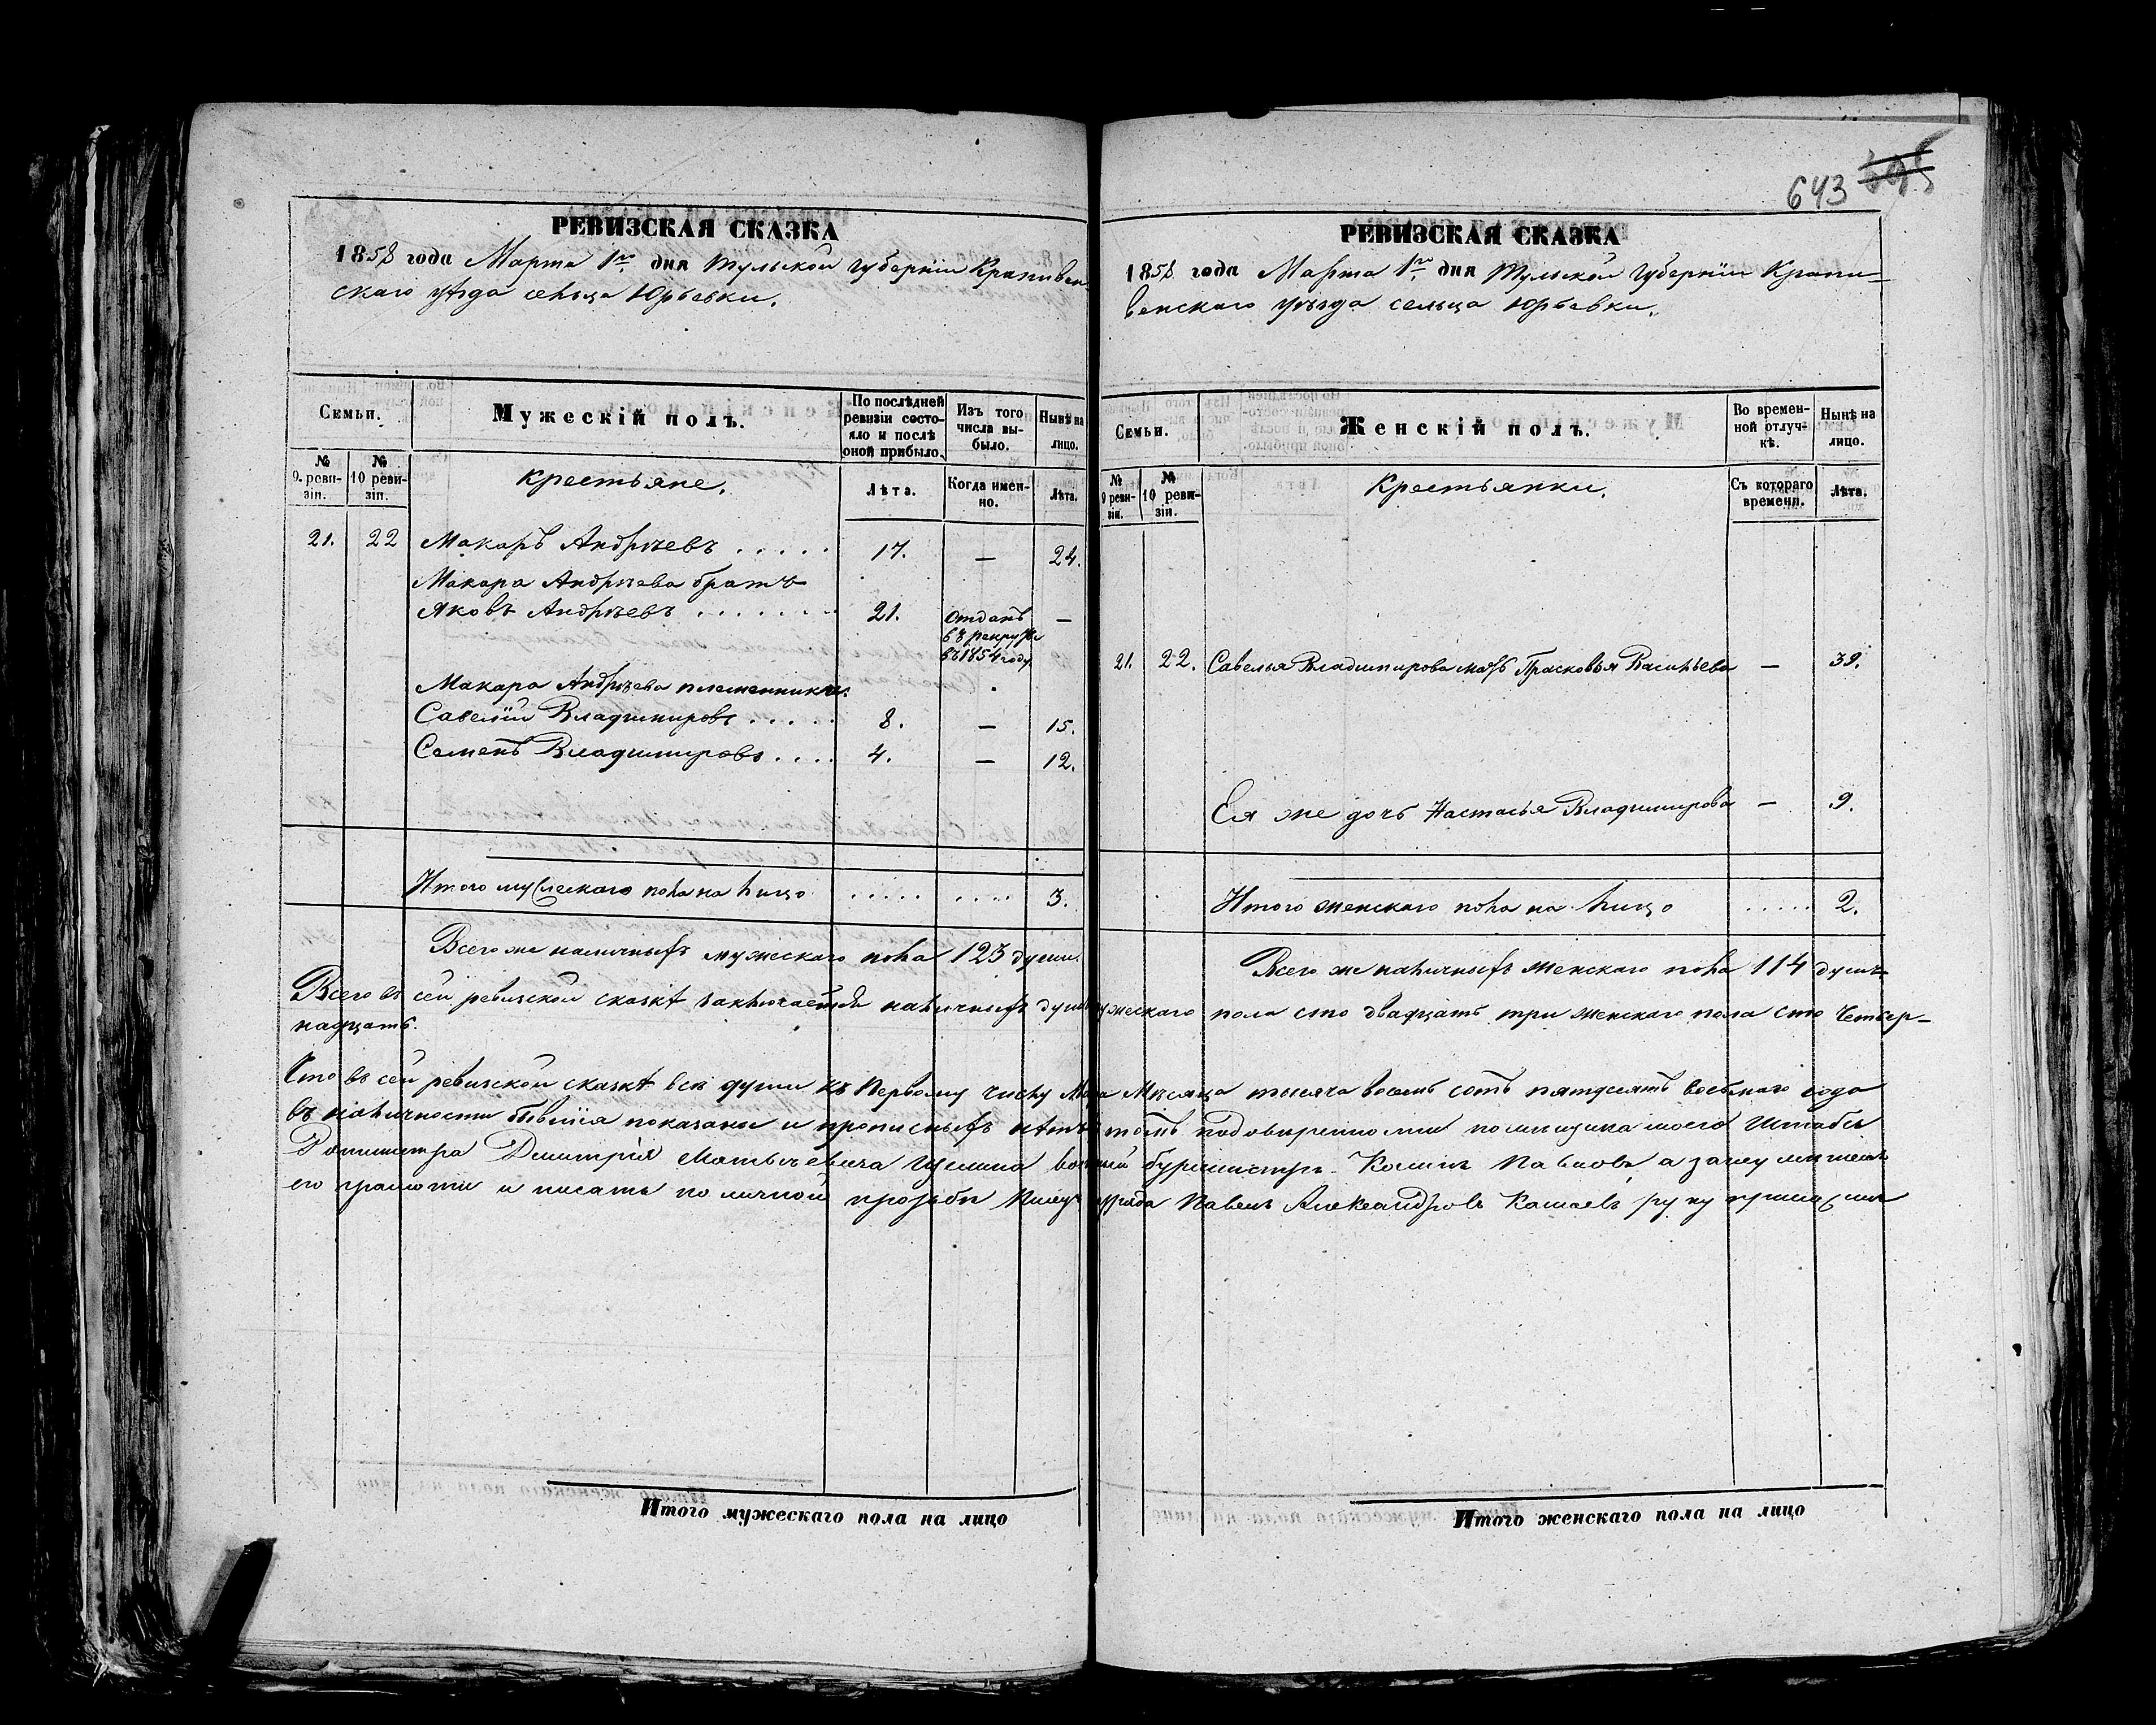 643 595
РЕВИЗСКАЯ СКАЗКА
1858 года Марта 1го дня Тульской Губернiи Крапивен-
скаго уѣзда сельца Юрьевки.
Семьи.
Мужескiй полъ.
По послѣдней ревизiи состо-
яло и послѣ
оной прибыло.
Изъ того
числа вы-
было.
Нынѣ на
лицо.
№
9. реви-
зiи.
№
10 реви-
зiи.
Крестьяне.
Лѣта.
Когда имен-
но.
Лѣта.
21. 22 Макаръ Андрѣевъ . . . . . 17. — 24.
Макара Андрѣева братъ
Яковъ Андрѣевъ . . . . . . . 21. Отданъ —
въ рекруты
въ 1854 году
Макара Андрѣева племянники:
Савелiй Владимировъ . . . . . 8. — 15.
Семенъ Владимировъ . . . . 4. — 12.
Итого мужескаго пола на лицо . . . . . . . . . 3.
Всего же наличныхъ мужескаго пола 123 души.
РЕВИЗСКАЯ СКАЗКА
1858 года Марта 1го дня Тульской Губернiи Крапи-
венскаго уѣзда сельца Юрьевки.
Семьи.
Женскiй полъ.
Во времен-
ной отлуч-
кѣ.
Нынѣ на
лицо.
№
9 реви-
зiи.
№
10 реви-
зiи.
Крестьянки.
Съ котораго
времени.
Лѣта.
21. 22. Савелья Владимирова мать Прасковья Васильева — 39.
Ея же дочь Настасья Владимирова — 9.
Итого женскаго пола на лицо . . . . . 2.
Всего же наличныхъ женскаго пола 114 душъ
Всего въ сей ревизской сказкѣ заключается наличныхъ душъ мужескаго пола сто двадцать три женскаго пола сто четыр-
надцать.
Что въ сей ревизской сказкѣ всѣ души къ Первому числу Марта Мѣсяца тысяча восемь сотъ пятдесятъ восьмаго года
въ наличности бывшiя показаны и прописныхъ нѣтъ въ томъ по довѣренности помѣщика моего Штабсъ
Ротмистра Дмитрiя Матвѣевича бурмистръ Павловъ, а за неумѣнiемъ
его грамоти и писать по личной прозьбѣ Павелъ Александровъ руку приложилъ
Итого мужескаго пола на лицо
Итого женскаго пола на лицо